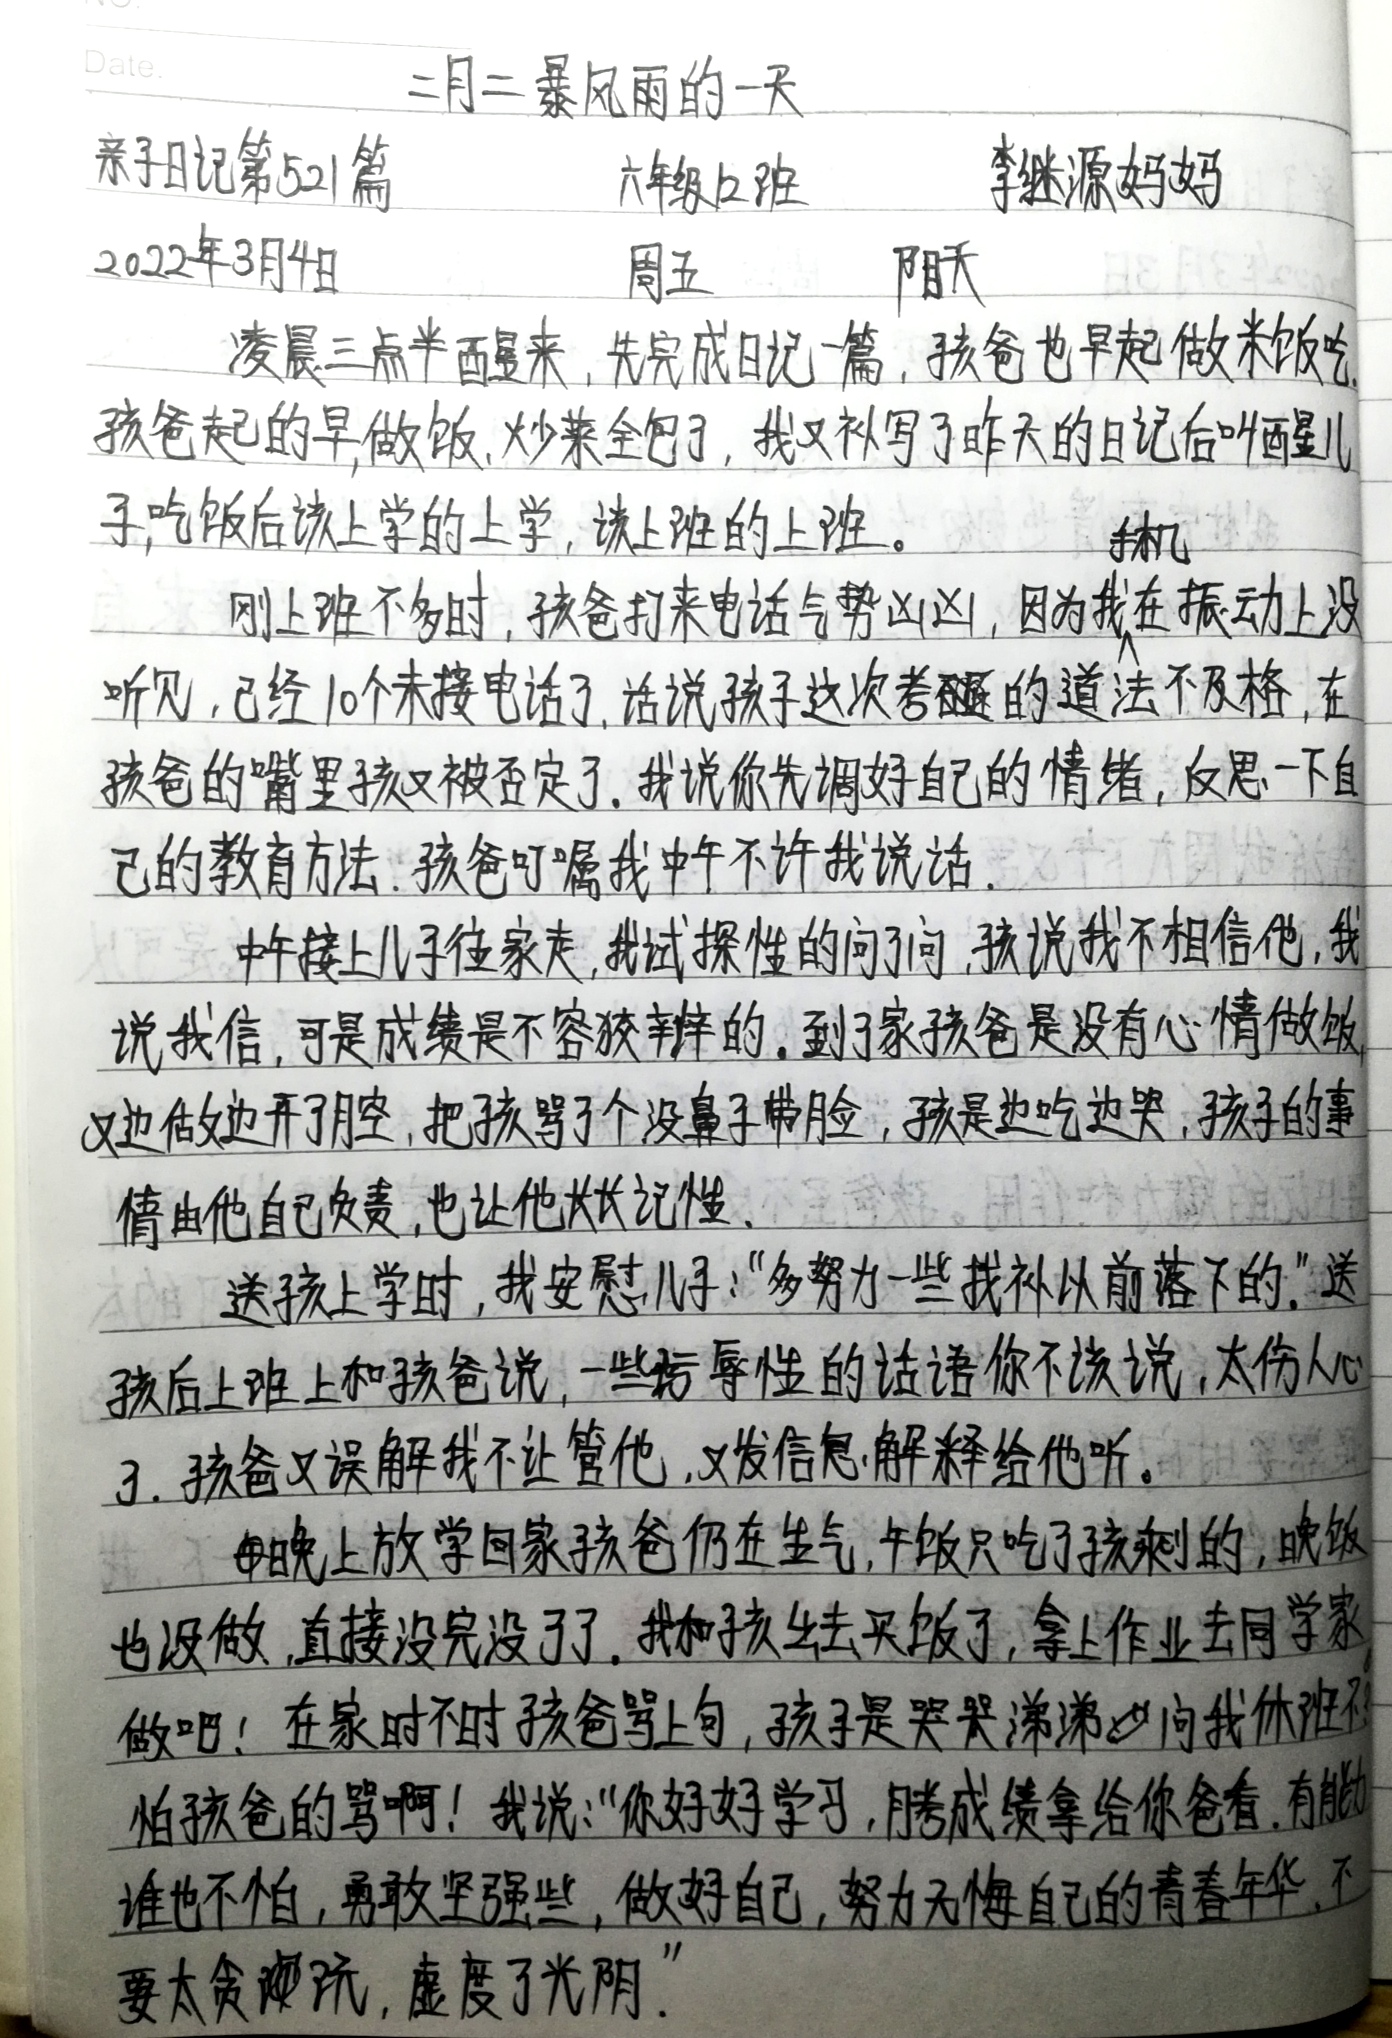 NO.
Date.
二月二暴风雨的一天
亲子日记第521篇 六年级12班 李继源妈妈
2022年3月4日 周五 阴天
凌晨三点半醒来,先完成日记一篇,孩爸也早起做米饭吃.
孩爸起的早,做饭、炒菜全包了,我又补写了昨天的日记后叫醒儿
子,吃饭后该上学的上学,该上班的上班。
手机
刚上班不多时,孩爸打来电话气势凶凶,因为我在振动上没
听见,已经10个未接电话了.话说孩子这次考的道法不及格,在
孩爸的嘴里孩又被否定了.我说你先调好自己的情绪,反思一下自
己的教育方法.孩爸叮嘱我中午不许我说话.
中午接上儿子往家走,我试探性的问了问,孩说我不相信他,我
说我信,可是成绩是不容狡辩的.到了家孩爸是没有心情做饭,
又边做边开了腔,把孩骂了个没鼻子带脸,孩是边吃边哭,孩子的事
情由他自己负责,也让他长长记性.
送孩上学时,我安慰儿子:“多努力一些找补以前落下的.”送
孩后上班上和孩爸说,一些辱性的话语你不该说,太伤人心
了.孩爸又误解我不让管他,又发信息解释给他听。
晚上放学回家孩爸仍在生气,午饭只吃了孩剩的,晚饭
也没做,直接没完没了了.我和孩出去买饭了,拿上作业去同学家
做吧!在家时不时孩爸骂上句,孩子是哭哭涕涕问我休班不
怕孩爸的骂啊!我说:“你好好学习,月考成绩拿给你爸看.有能力
谁也不怕,勇敢坚强些,做好自己,努力无悔自己的青春年华、不
要太贪玩,虚度了光阴.”